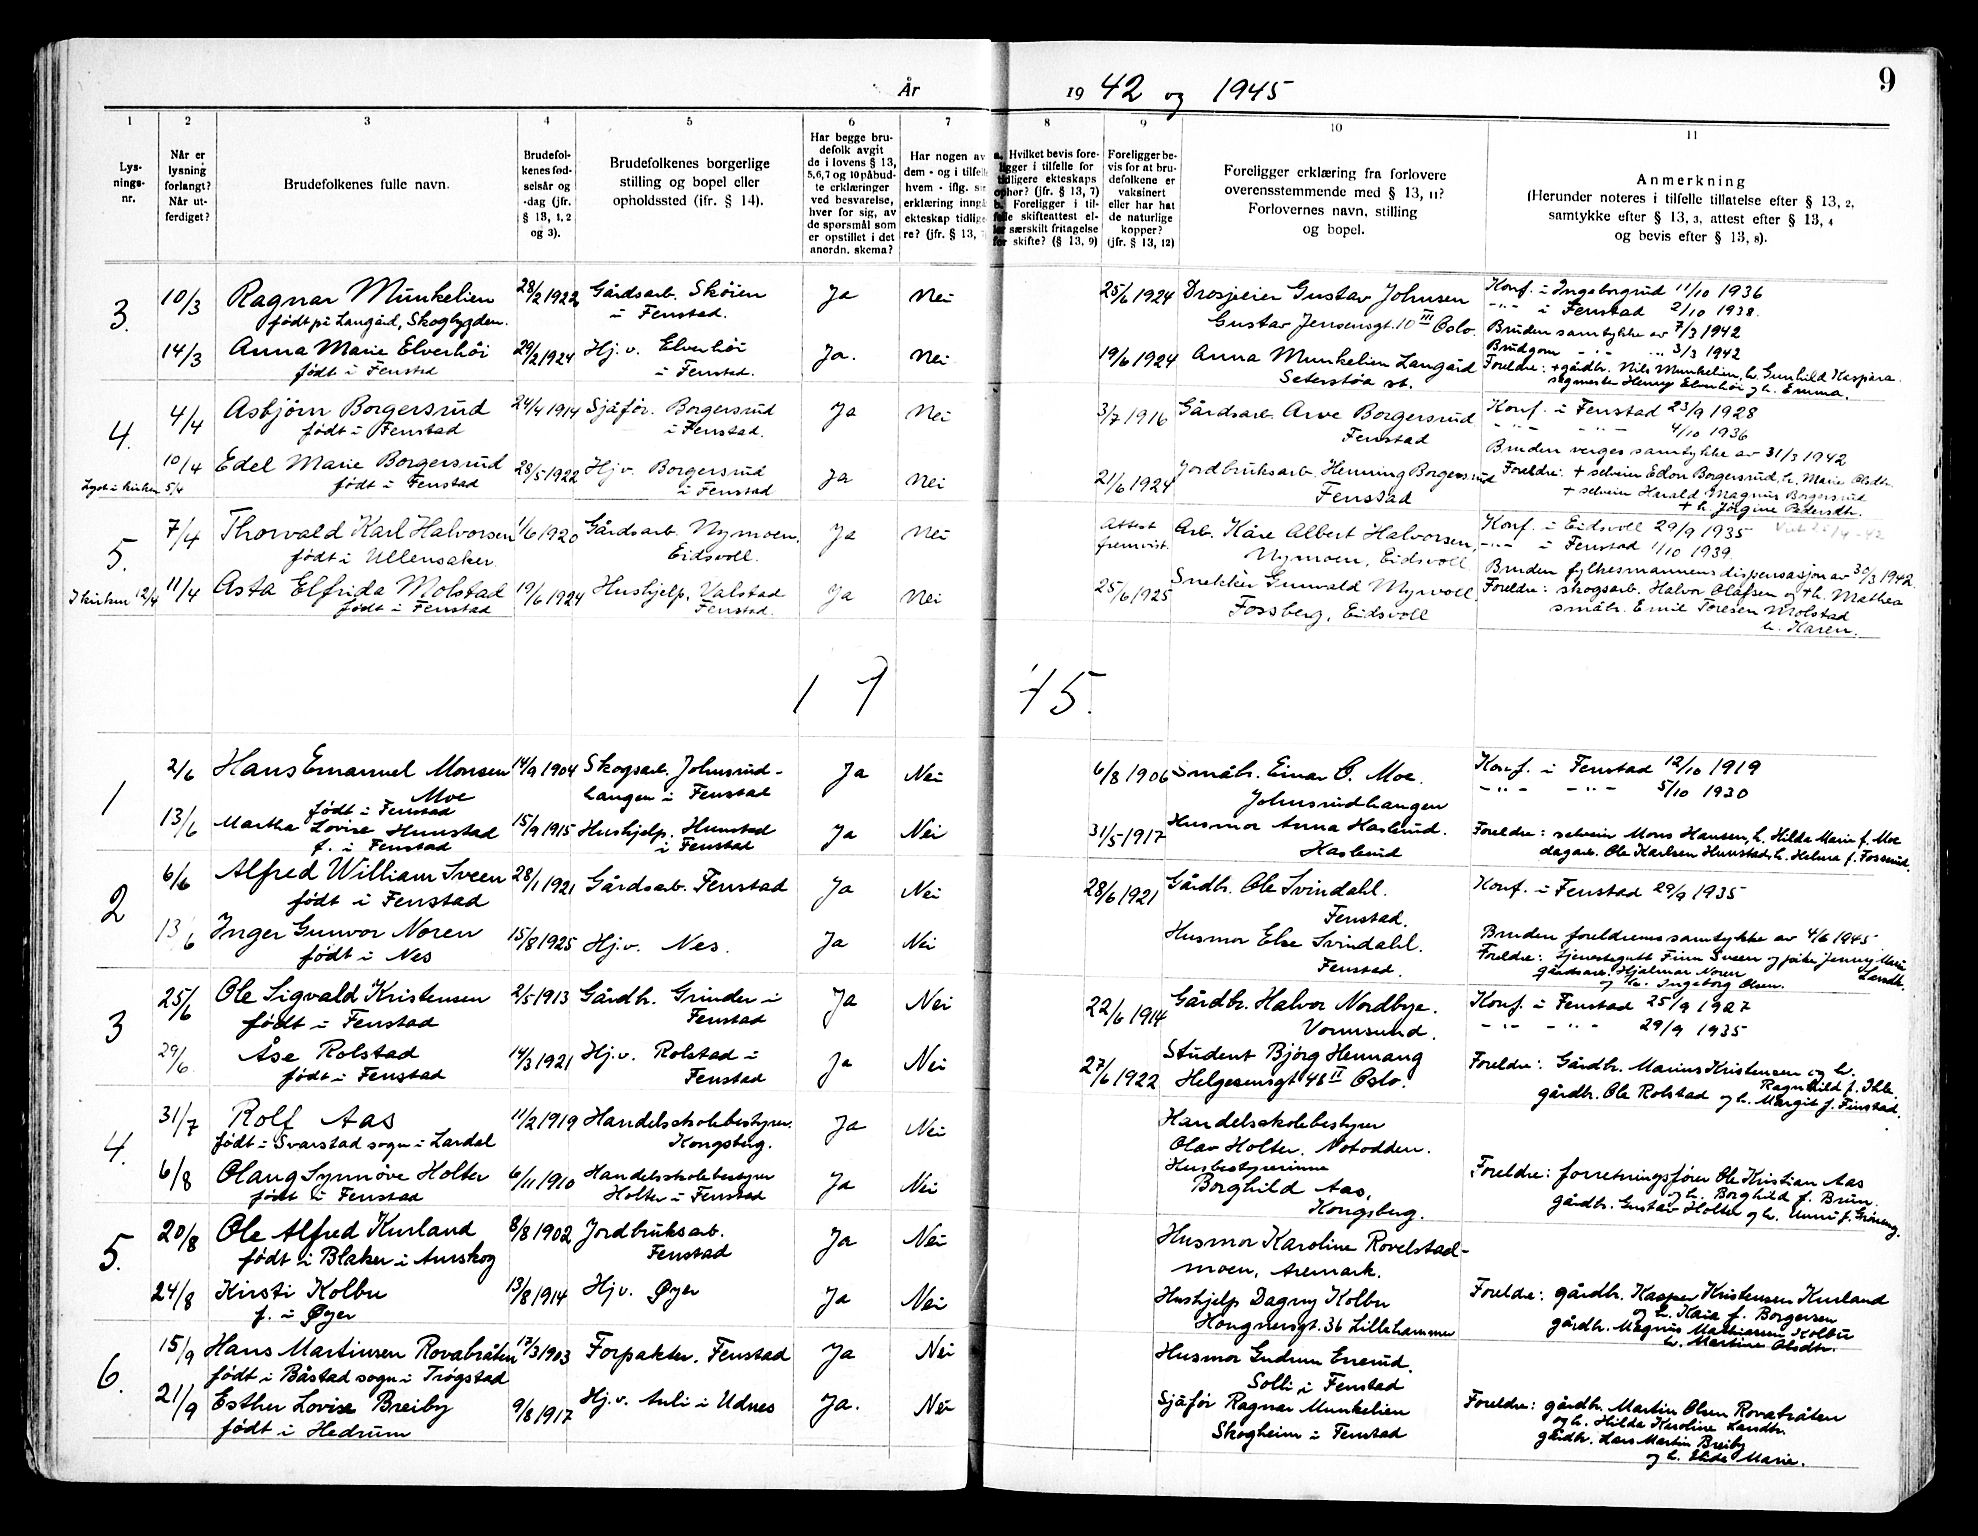 År 19 42 og 1945 9
1 2 3 4 5 6 7 8 9 10 11
Lys-
nings-
nr.
Når er
lysning
forlangt?
Når ut-
ferdiget?
Brudefolkenes fulle navn.
Brudefol-
kenes fød-
selsår og
-dag (jfr.
§ 13, 1, 2
og 3).
Brudefolkenes borgerlige
stilling og bopel eller
opholdssted (ifr. § 14).
Har begge bru-
defolk avgit
de i lovens § 13,
5,6,7 og 10 påbud-
te erklæringer
ved besvarelse,
hver for sig, av
de spørsmål som
er opstillet i det
anordn. skema?
Har nogen av
dem - og i tilfelle
hvem - iflg. sin
erklæring inngå
ekteskap tidlige-
re? (jfr. § 13, 7
a. Hvilket bevis fore-
ligger i tilfelle for
tidligere ekteskaps
ophør? (jfr. § 13, 7)
b. Foreligger i til-
felle skifteattest el-
ler særskilt fritagelse
for skifte? (§ 13, 9)
Foreligger be-
vis for at bru-
defolkene er
vaksinert
eller har hat
de naturlige
kopper?
(jfr. § 13, 12)
Foreligger erklæring fra forlovere
overensstemmende med § 13, 11?
Forlovernes navn, stilling
og bopel.
Anmerkning
(Herunder noteres i tilfelle tillatelse efter § 13, 2,
samtykke efter § 13, 3, attest efter § 13, 4
og bevis efter § 13, 8).
3. 10/3 Ragnar Munkelien 28/2 1922 Gårdsarb. Skøien Ja Nei 25/6 1924 Drosjeeier Gustav Johnsen Konf. i Ingeborgrud 11/10 1936
født på Langård, Skogbygden. i Fenstad. Gustav Jensensgt. 10 III Oslo. -"- i Fenstad 2/10 1938.
Bruden samtykke av 7/3 1942
14/3 Anna Marie Elverhøi 29/2 1924 Hj. v. Elverhøi Ja. Nei 19/6 1924 Anna Munkelien Langård Brudgom -"- -"- 3/3 1942
født i Fenstad i Fenstad. Seterstøa st. Foreldre: + gårdbr. Nils Munkelien, h. Gunhild Kaspara.
sagmester Henry Elverhøi og h. Emma.
4. 4/4 Asbjørn Borgersrud 24/4 1914 Sjåfør. Borgersrud Ja Nei 3/7 1916 Gårdsarb. Arve Borgersrud Konf. i Fenstad 23/9 1928
født i Fenstad i Fenstad. Fenstad -"- -"- 4/10 1936
Bruden verges samtykke av 31/3 1942
10/4 Edel Marie Borgersrud 28/5 1922 Hj. v. Borgersrud Ja Nei 21/6 1924 Jordbruksarb. Henning Borgersrud Foreldre: + selveier Edon Borgersrud, h. Marie Olsdtr.
Lyst i kirken 5/4 født i Fenstad i Fenstad Fenstad + selveier Harald Magnus Borgersrud
+ h. Jørgine Petersdtr.
5. 7/4 Thorvald Karl Halvorsen 1/6 1920 Gårdsarb. Nymoen, Ja Nei Attest fremvist. Arb. Kåre Albert Halvorsen, Konf. i Eidsvoll 29/9 1935
født i Ullensaker. Eidsvoll. Nymoen, Eidsvoll -"- i Fenstad 1/10 1939.
Bruden fylkesmannens dispensasjon av 30/3 1942.
I kirken 12/4 11/4 Asta Elfrida Molstad 19/6 1924 Hushjelp, Valstad Ja Nei 25/6 1925 Snekker Gunvald Myrvoll Foreldre: skogsarb. Halvor Olafsen og +h. Mathea
født i Fenstad Fenstad. Fossberg, Eidsvoll småbr. Emil Toresen Molstad
h. Karen.
1 9 45.
1 2/6 Hans Emanuel Monsen 14/9 1904 Skogsarb. Johnsrud- Ja Nei 6/8 1906 Småbr. Einar O. Moe. Konf. i Fenstad 12/10 1919
Moe hangen i Fenstad Johnsrudhangen -"- -"- 5/10 1930
født i Fenstad
13/6 Martha Lovise Hunstad 15/9 1915 Hushjelp. Hunstad Ja Nei 31/5 1917 Husmor Anna Haslund. Foreldre: selveier Mons Hansen, h. Hilda Marie f. Moe
f. i Fenstad i Fenstad Haslund dagarb. Ole Karlsen Hunstad, h. Helene f. Fosserud.
2 6/6 Alfred William Sveen 28/1 1921 Gårdsarb. Fenstad Ja Nei 28/6 1921 Gårdbr. Ole Svindahl. Konf. i Fenstad 29/9 1935
født i Fenstad Fenstad.
13/6 Inger Gunvor Noren 15/8 1925 Hj. v. Nes. Ja Nei Husmor Else Svindahl. Bruden foreldrenes samtykke av 4/6 1945
født i Nes Fenstad. Foreldre: tjenestegutt Finn Sveen og pike Jenny Marie
gårdsarb. Hjalmar Noren
og h. Ingeborg Olsen.
3 25/6 Ole Sigvald Kristensen 2/5 1913 Gårdbr. Grinder i Ja Nei 22/6 1914 Gårdbr. Halvor Nordbye. Konf. i Fenstad 25/9 1927
født i Fenstad Fenstad Vormsund. -"- -"- 29/9 1935
29/6. Åse Rolstad 14/3 1921 Hj. v. Rolstad i Ja Nei 27/6 1922 Student Bjørg Hennang Foreldre: Gårdbr. Marius Kristensen og h.
født i Fenstad Fenstad Helgesensgt 48 II Oslo. Ragnhild f. Ihle
gårdbr. Ole Rolstad og h. Margit f. Finstad.
4. 31/7 Rolf Aas 11/2 1919 Handelsskolebestyrer. Ja Nei Handelsskolebestyrer
født i Svarstad sogn i Lardal Kongsberg. Olav Holter. Notodden.
6/8 Olaug Synnøve Holter 6/11 1910 Handelsskolebestyrer Ja Nei Husbestyrerinne Foreldre: forretningsfører Ole Kristian Aas
født i Fenstad Holter i Fenstad Borghild Aas, og h. Borghild f. Brun.
Kongsberg. gårdbr. Gustav Holter og h. Unni f.
5. 20/8 Ole Alfred Kurland 8/8 1902 Jordbruksarb. Ja Nei Husmor Karoline Rovelstad-
født i Blaker i Aurskog Fenstad moen, Aremark.
24/8 Kirsti Kolbu 13/8 1914 Hj. v. Øyer Ja Nei Hushjelp Dagny Kolbu Foreldre: gårdbr. Kasper Kristensen Kurland
f. i Øyer Hougnersgt. 36 Lillehammer og h. Kaia f. Borgersen
gårdbr. Magnus Mathiassen Kolbu
h. Martine Olsdtr.
6. 15/9 Hans Martinsen Rovabråten 17/3 1903 Forpakter. Fenstad Ja Nei Husmor Gudrun Enerud.
født i Båstad sogn i Trøgstad Solli i Fenstad
21/9 Esther Lovise Breiby 9/8 1917 Hj. v. Auli i Udnes Ja. Nei Sjåfør Ragnar Munkelien Foreldre: gårdbr. Martin Olsen Rovabråten
født i Hedrum Skogheim i Fenstad og h. Hilda Karoline Larsdtr.
gårdbr. Hans Martin Breiby
og h. Marie.